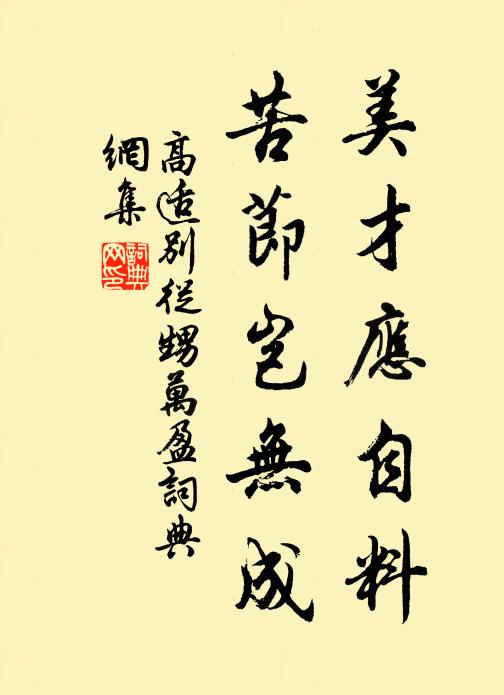 美才應自料
苦節豈無成
高適別從甥萬盈詞典
網集
詞典
网印